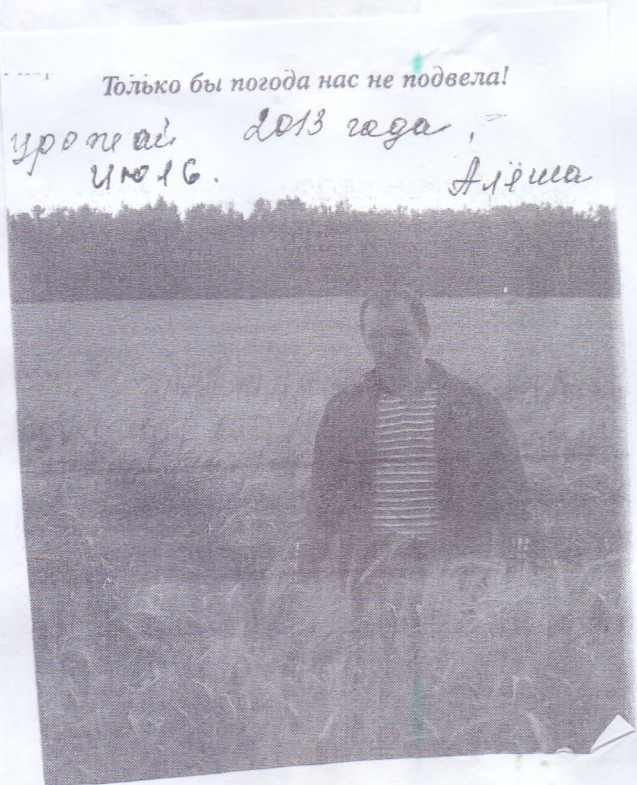 Только бы погода нас не подвела!
урожай 2013 года,
июль. Алёша